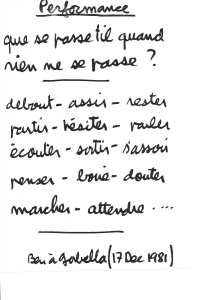 Performance
que se passe til quand
rien ne se passe ?
debout - assis - rester
partir - hésiter - parler
écouter - sortir - s'assoir
penser - boire - douter
marcher - attendre ....
Ben à Isabella (17 Dec 1981)